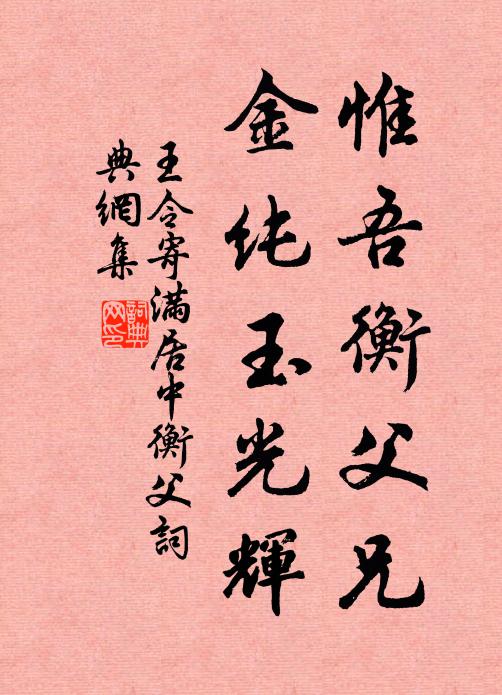 惟吾衡父兄
金纯玉光輝
王令寄滿居中衡父詞
典網集
詞典網印